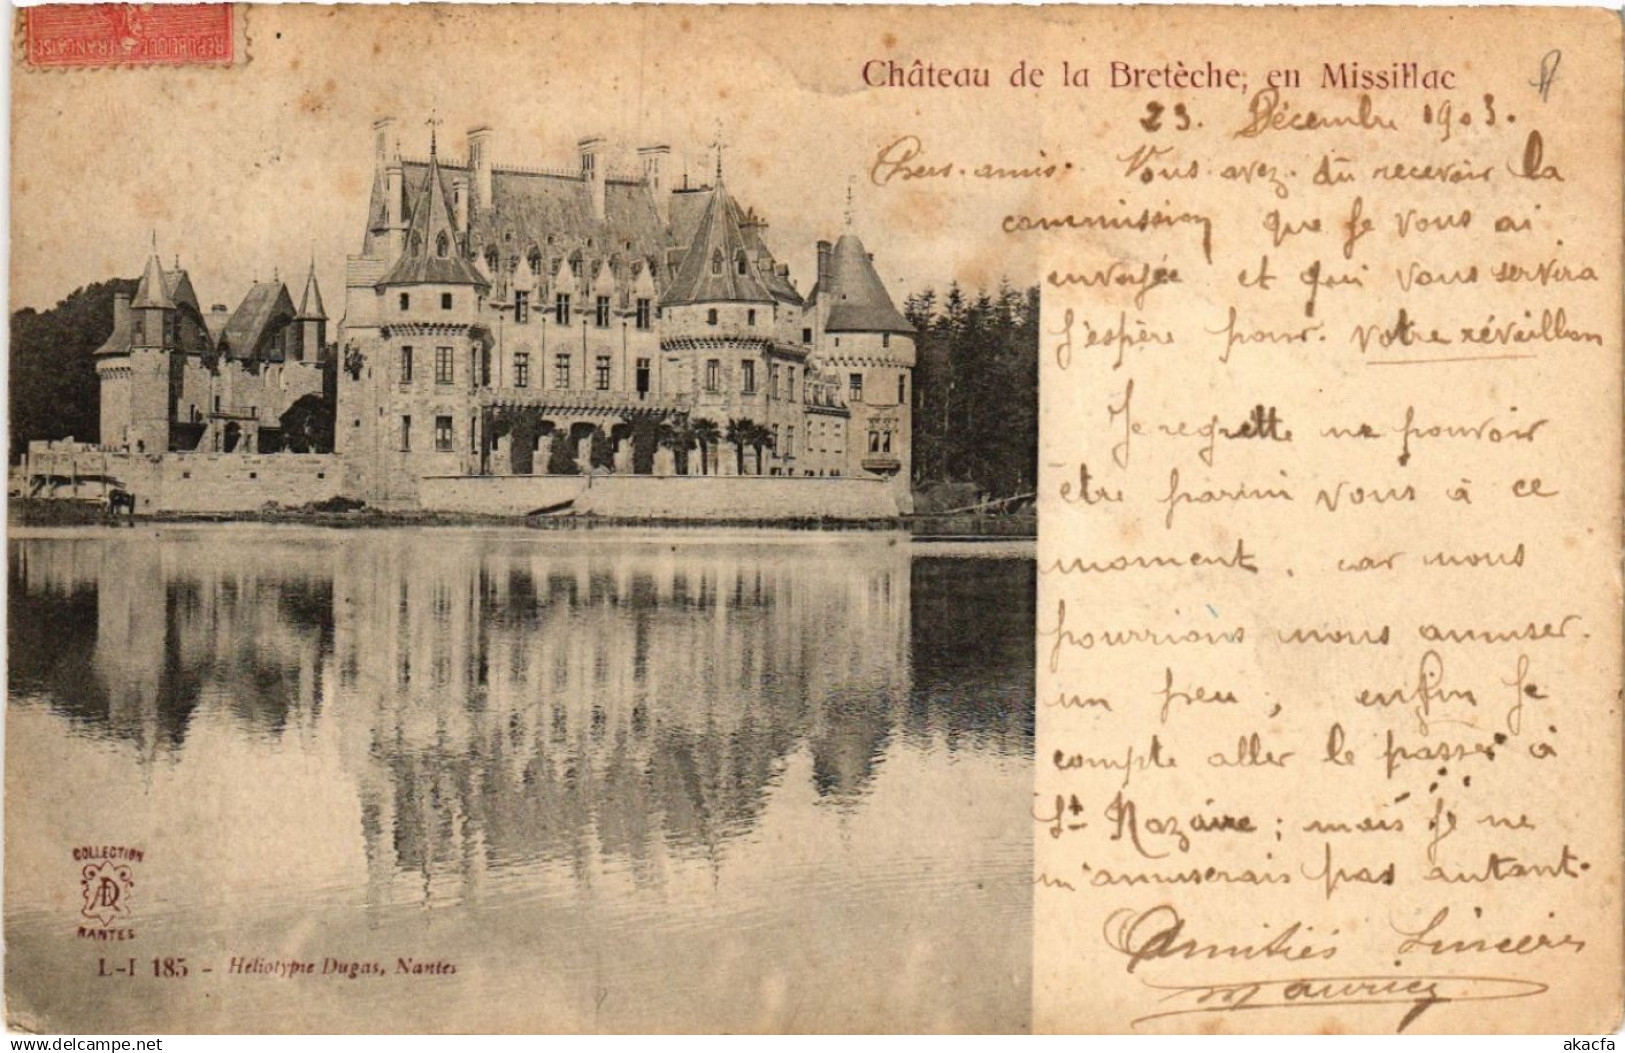 RÉPUBLIQUE FRANÇAISE
Château de la Bretèche, en Missillac
23. Décembre 1903.
Chers amis. Vous avez dû recevoir la
commission que je vous ai
envoyée et qui vous servira
j'espère pour votre réveillon
Je regrette ne pouvoir
être parmi vous à ce
moment, car nous
pourrions nous amuser
un peu, enfin je
compte aller le passer à
St Nazaire; mais je ne
m'amuserais pas autant.
Amitiés Sincères
Maurice
COLLECTION
AD
NANTES
L-I 185 - Héliotypie Dugas, Nantes
akacfa